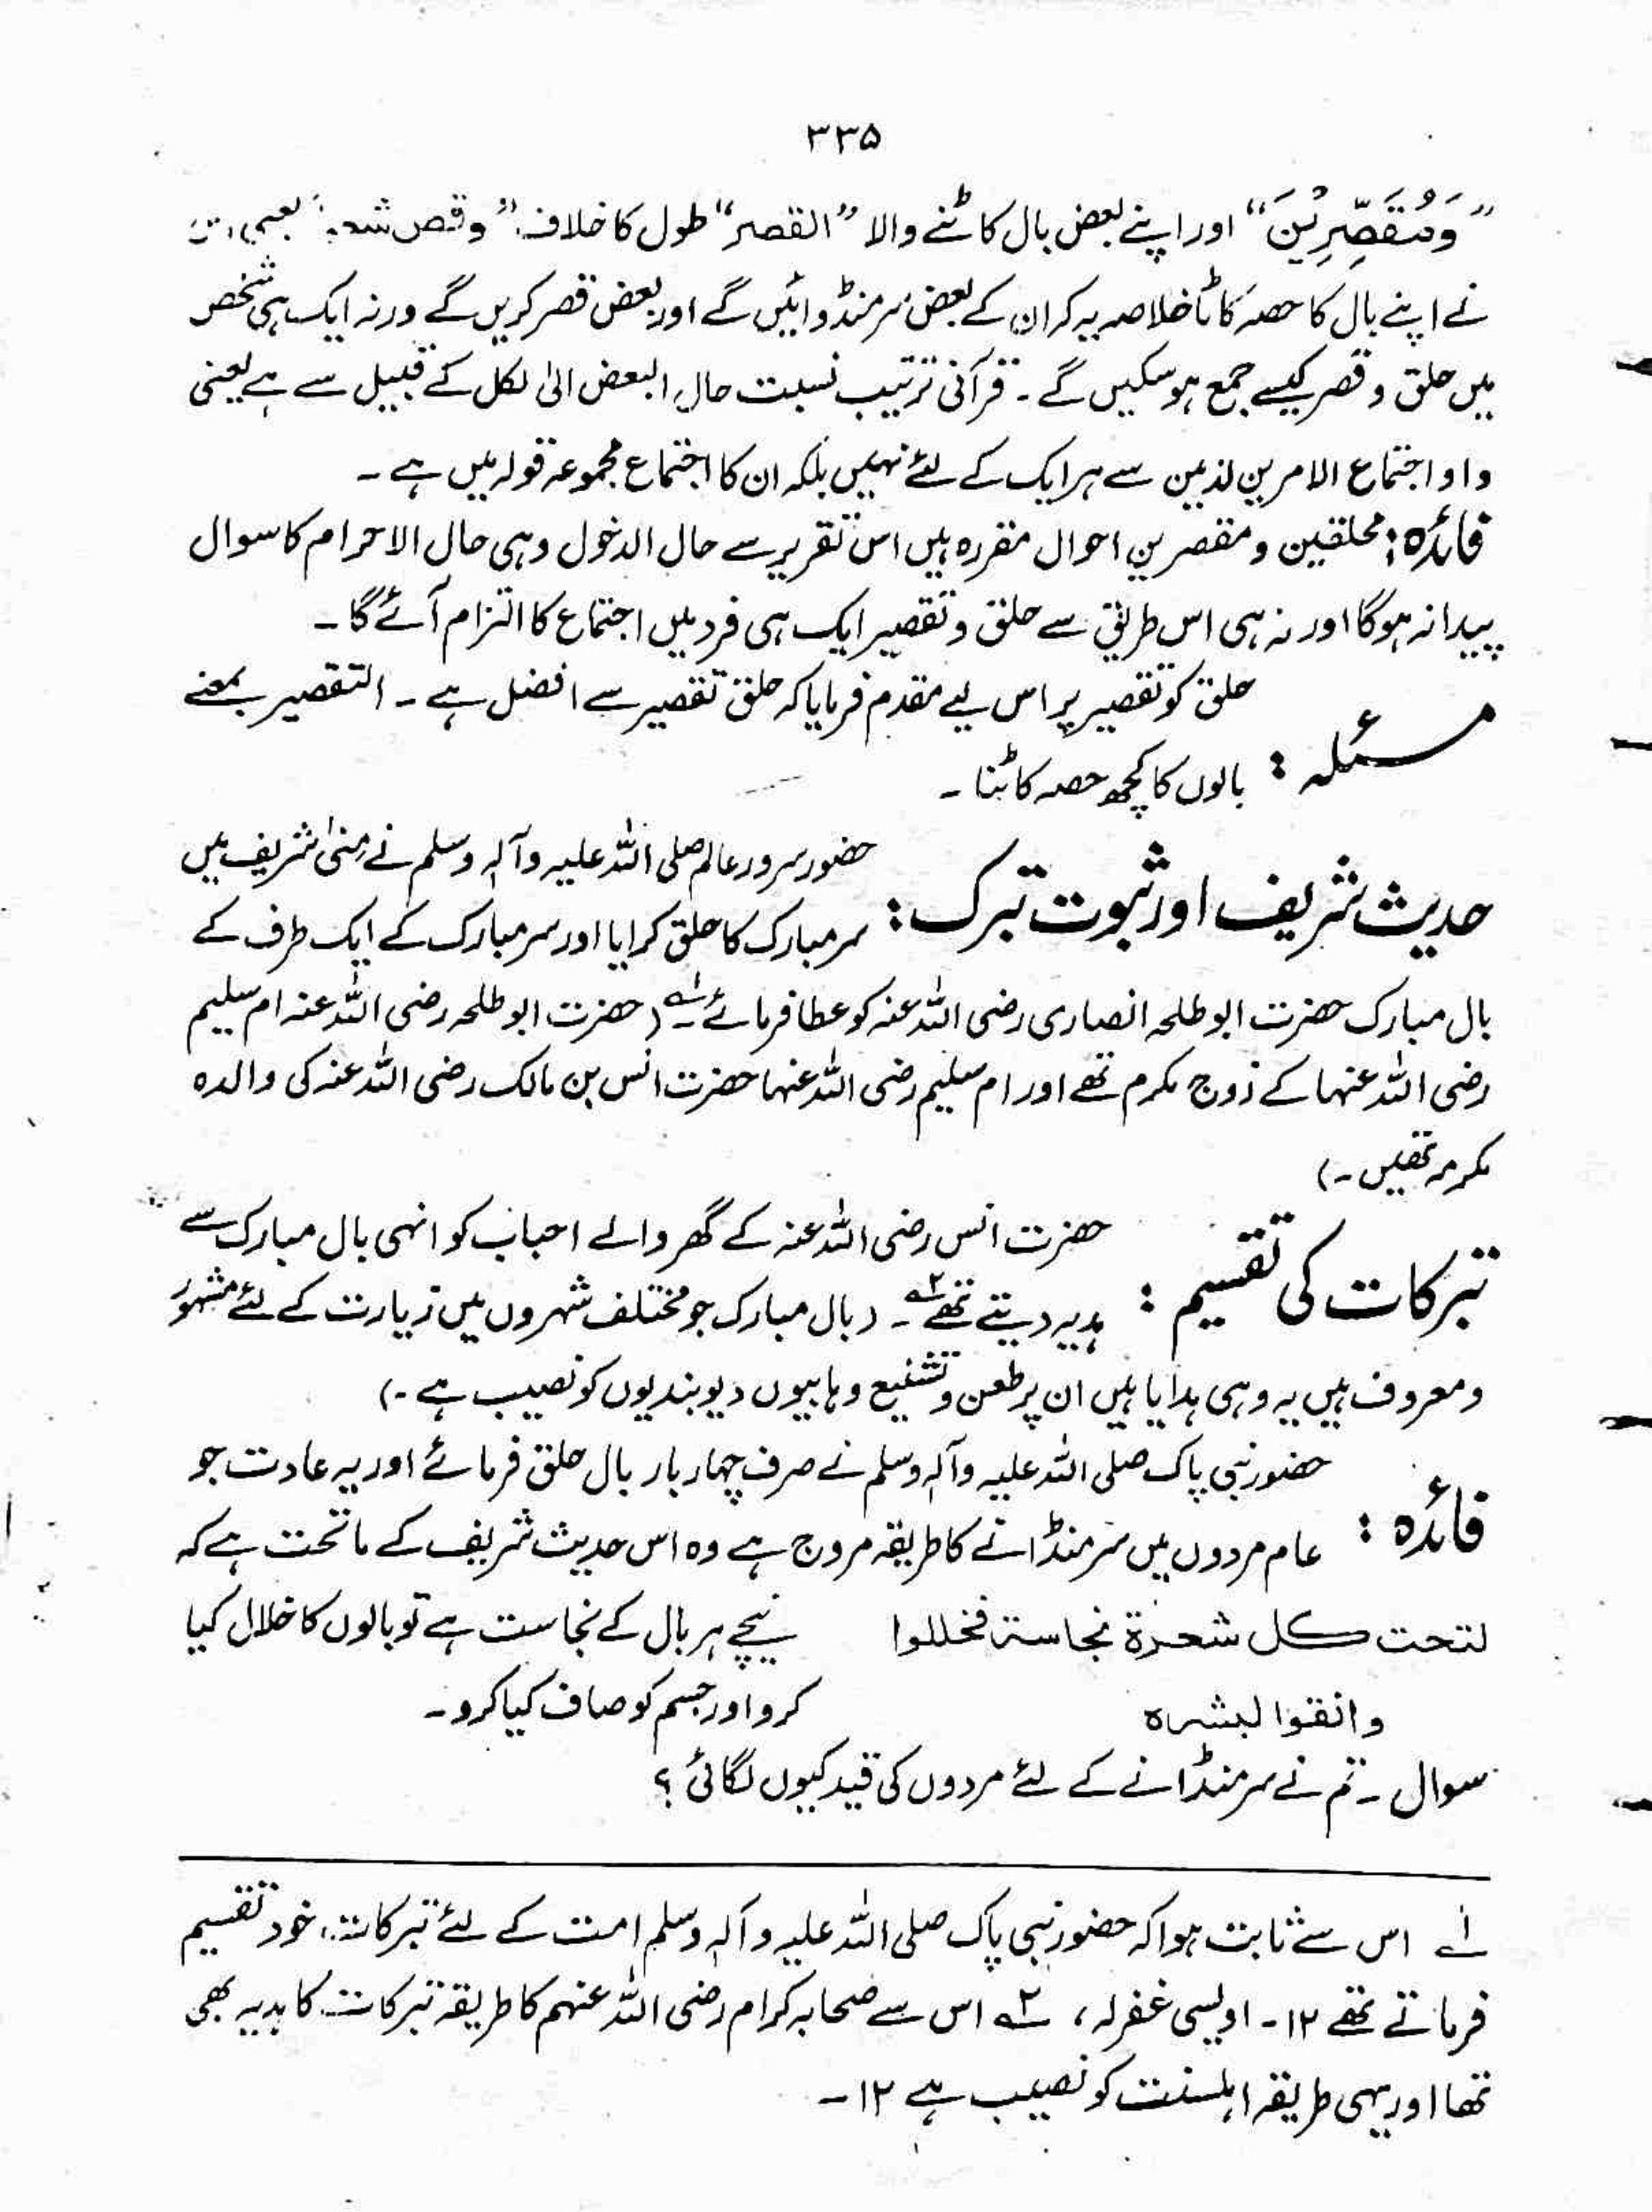 ۳۳۵
”وَمُقَصِّرِيْنَ“ اور اپنے بعض بال کاٹنے والا ”القصر“ طول کا خلاف ”وقص شعرہ یعنی اس
نے اپنے بال کا حصہ کاٹا خلاصہ یہ کہ ان کے بعض سر منڈوائیں گے اور بعض قصر کریں گے ورنہ ایک ہی شخص
میں حلق و قصر کیسے جمع ہو سکیں گے ۔ قرآنی ترتیب نسبت حال البعض الیٰ لکل کے قبیل سے ہے یعنی
واو اجتماع الامرین لذمین سے ہر ایک کے لئے نہیں بلکہ ان کا اجتماع مجموعہ قولہ میں ہے ۔
فائدہ : محلقین و مقصرین احوال مقررہ ہیں اس تقریر سے حال الدخول وہی حال الاحرام کا سوال
پیدا نہ ہوگا اور نہ ہی اس طریق سے حلق و تقصیر ایک ہی فرد میں اجتماع کا التزام آئے گا ۔
مسئلہ : حلق کو تقصیر پر اس لیے مقدم فرمایا کہ حلق تقصیر سے افضل ہے ۔ التقصیر بمعنے
بالوں کا کچھ حصہ کاٹنا ۔
حدیث شریف اور ثبوت تبرک : حضور سرور عالم صلی اللہ علیہ وآلہٖ وسلم نے مِنیٰ شریف میں
سر مبارک کا حلق کرایا اور سر مبارک کے ایک طرف کے
بال مبارک حضرت ابو طلحہ انصاری رضی اللہ عنہ کو عطا فرمائے ۱ے (حضرت ابو طلحہ رضی اللہ عنہ ام سلیم
رضی اللہ عنہا کے زوج مکرم تھے اور ام سلیم رضی اللہ عنہا حضرت انس بن مالک رضی اللہ عنہ کی والدہ
مکرمہ تھیں ۔)
تبرکات کی تقسیم : حضرت انس رضی اللہ عنہ کے گھر والے احباب کو انہی بال مبارک سے
ہدیہ دیتے تھے ۲ے ۔ (بال مبارک جو مختلف شہروں میں زیارت کے لئے مشہور
و معروف ہیں یہ وہی ہدایا ہیں ان پر طعن و تشنیع وہابیوں دیوبندیوں کو نصیب ہے ۔)
فائدہ : حضور نبی پاک صلی اللہ علیہ وآلہٖ وسلم نے صرف چہار بار بال حلق فرمائے اور یہ عادت جو
عام مردوں میں سر منڈانے کا طریقہ مروج ہے وہ اس حدیث شریف کے ماتحت ہے کہ
لتحت کل شعرۃ نجاستہ فخللوا نیچے ہر بال کے نجاست ہے تو بالوں کا خلال کیا
وانقوا لبشرہ کرو اور جسم کو صاف کیا کرو ۔
سوال ۔ تم نے سر منڈانے کے لئے مردوں کی قید کیوں لگائی ؟
۱ے اس سے ثابت ہوا کہ حضور نبی پاک صلی اللہ علیہ وآلہٖ وسلم امت کے لئے تبرکات خود تقسیم
فرماتے تھے ۱۲ ۔ اویسی غفرلہ ، ۲ے اس سے صحابہ کرام رضی اللہ عنہم کا طریقہ تبرکات کا ہدیہ بھی
تھا اور یہی طریقہ اہلسنت کو نصیب ہے ۱۲ ۔